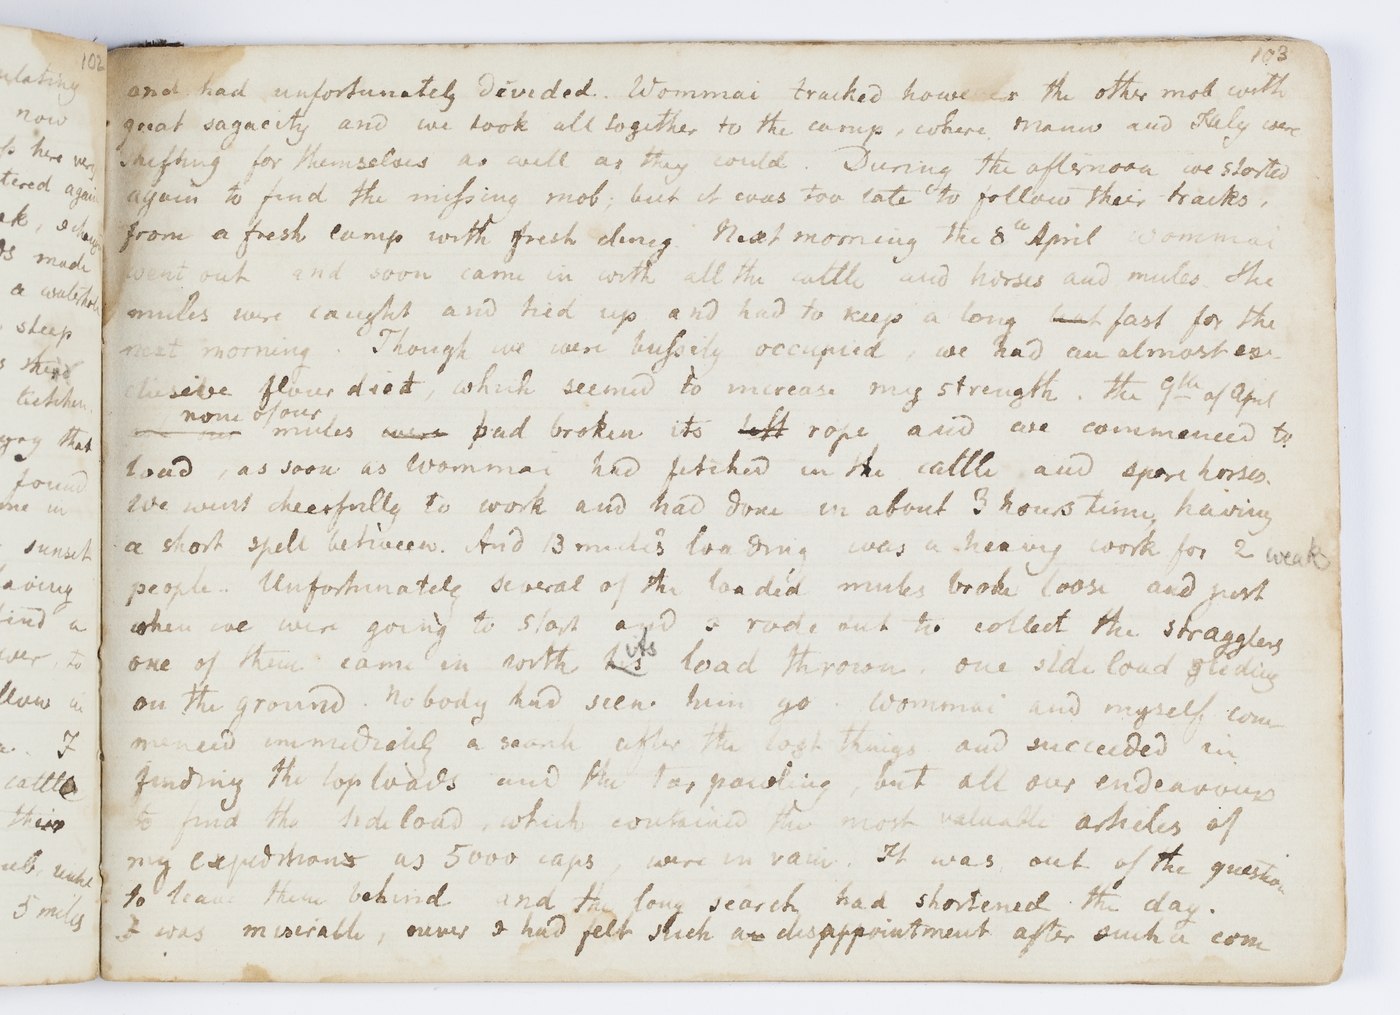 102
ulating
now
here very
tered again
ak, I
made
a waterhole
steep
third
kitchen
that
found
me in
sunset
having
find a
ver, to
llow in
I
cattle
their
5 miles
103
and had unfortunately devided. Wommai tracked however the other mob with
great sagacity and we took all together to the camp, where Mann and Kely were
shifting for themselves as well as they could. During the afternoon we started
again to find the missing mob; but it was too late to follow their tracks.
from a fresh camp with fresh dung. Next morning the 8th April Wommai
went out and soon came in with all the cattle and horses and mules. The
mules were caught and tied up and had to keep a long but fast for the
next morning. Though we were bussily occupied, we had an almost ex-
clusive flour diet, which seemed to increase my strength. the 9th of April
none of our
mules were had broken its left rope and we commenced to
load, as soon as Wommai had fetched in the cattle and spare horses.
We went cheerfully to work and had done in about 3 hours time, having
a short spell between. And 13 mules loading was a heavy work for 2 weak
people. Unfortunately several of the loaded mules broke loose and just
when we were going to start and I rode out to collect the stragglers
its
one of them came in with his load thrown. one side load gliding
on the ground. Nobody had seen him go. Wommai and myself com-
menced immediately a search after the lost things and succeeded in
finding the toploads and the tarpauling, but all our endeavours
to find the sideload, which contained the most valuable articles of
my expeditions as 5000 caps, were in vain. It was out of the question
to leave them behind and the long search had shortened the day.
I was miserable, never I had felt such an disappointment after such a com